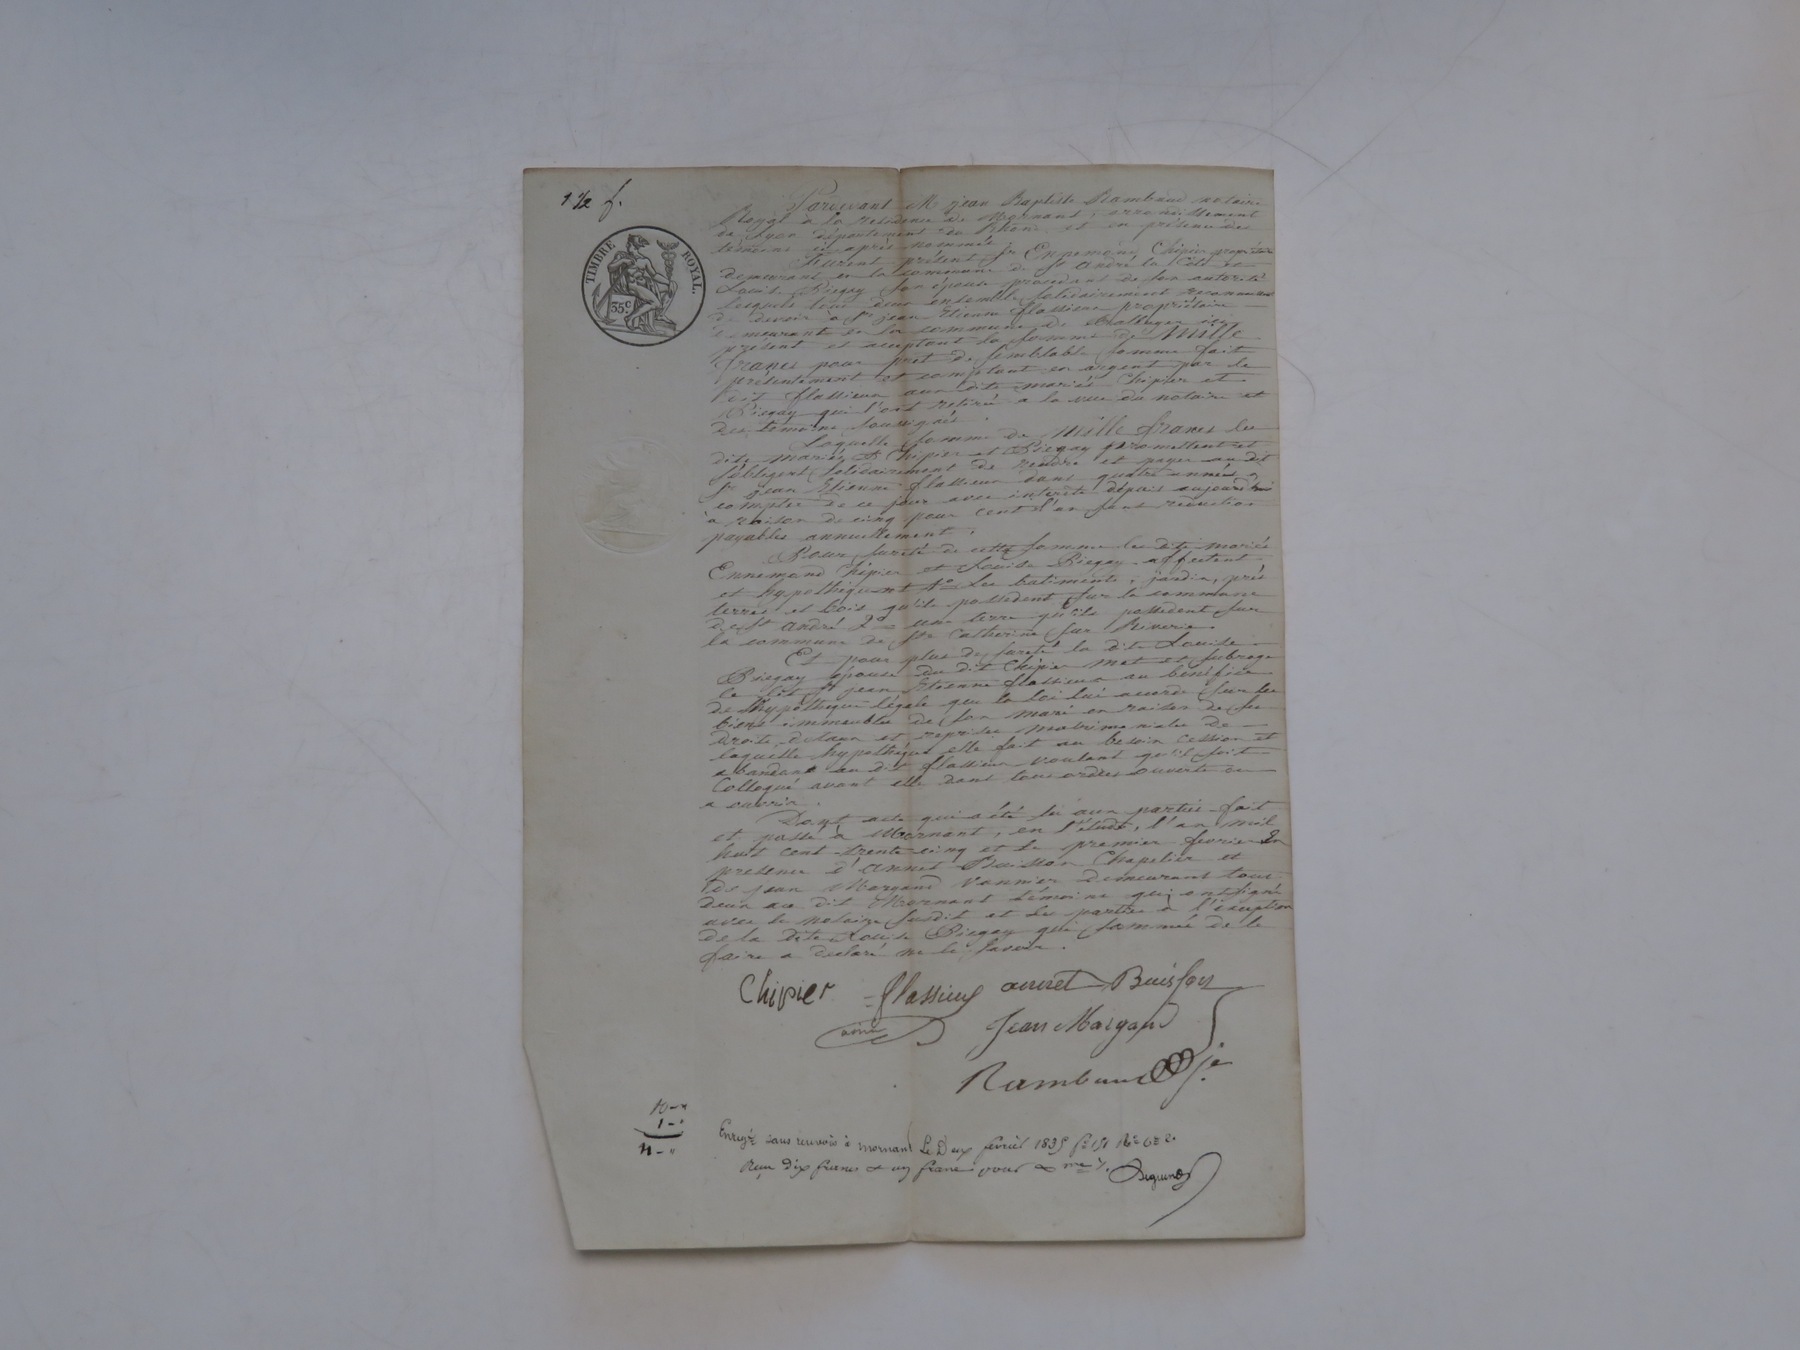 1 1/2 f.
TIMBRE ROYAL.
35 c
Pardevant Me jean Baptiste Rambaud notaire
Royal à la résidence de Mornant, arrondissement
de Lyon département du Rhône, et en présence des
témoins ci après nommés
Furent présent Sr Ennemond Chipier propriétaire
demeurant en la commune de St André la Côte et
Louise Piegay son épouse procédant de son autorité
lesquels tout deux ensemble solidairement reconnaissent
de devoir à Sr jean Etienne flassieux propriétaire
demeurant en la commune de ici
présent et acceptant la somme de Mille
francs pour prêt de semblable somme fait
présentement et comptant en argent par le
dit flassieux aux dits mariés Chipier et
Piegay qui l'ont retiré a la vue du notaire et
des témoins soussignés.
Laquelle somme de Mille francs les
dits mariés Chipier et Piegay promettent et
s'obligent solidairement de rendre et payer au dit
Sr jean Etienne flassieux dans quatre années
comptés de ce jour avec intérêts depuis aujourd'hui
à raison de cinq pour cent l'an sans réduction
payables annuellement.
Pour sureté de cette somme les dits mariés
Ennemond Chipier et Louise Piegay affectent
et hypothéquent 1o les batiments, jardin, prés
terres et bois qu'ils possèdent sur la commune
de St André 2o une terre qu'ils possèdent sur
la commune de Ste Catherine sur Riverie.
Et pour plus de sureté la dite Louise
Piegay épouse du dit Chipier met et subroge
le dit Sr jean Etienne flassieux au bénéfice
de l'hypothèque légale que la loi lui accorde sur les
biens immeubles de son mari en raison de ses
droits, dotaux et reprises matrimoniales de
laquelle hypothèque elle fait au besoin cession et
abandon au dit flassieux voulant qu'il soit
Colloqué avant elle dans tous ordres ouverts ou
a ouvrir.
Dont acte qui a été lu aux parties fait
et passé à Mornant, en l'étude, l'an mil
huit cent trente cinq et le premier février En
présence d'annet Buisson Chapelier et
de jean Margand vannier demeurant tous
deux au dit Mornant témoins qui ont signé
avec le notaire susdit et les parties à l'exception
de la dite Louise Piegay qui sommée de le
faire a déclaré ne le savoir.
Chipier flassieux annet Buisson
ainé Jean Margand
Rambaud
10 -
1 -
11 -
Enregé sans renvois à mornant Le Deux février 1835
Reçu dix francs & un franc pour